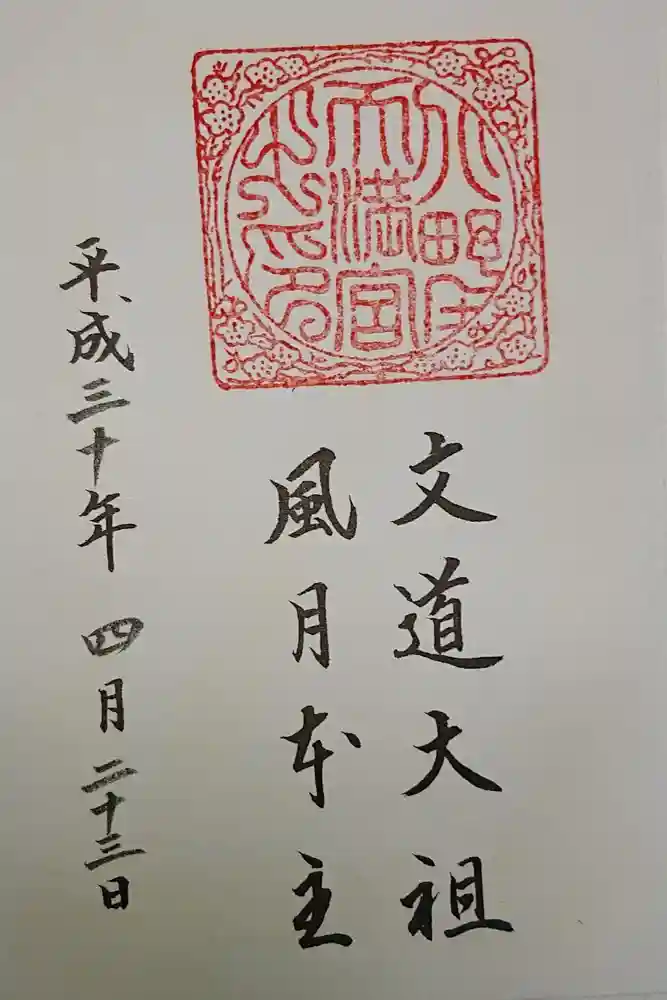 天満宮
文道大祖
風月本主
平成三十年 四月二十三日